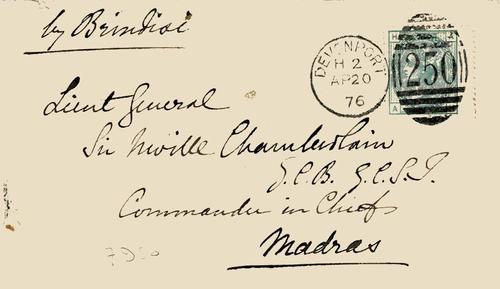 by Brindisi
DEVONPORT
H 2
AP20
76
250
H
A
Lieut General
Sir Neville Chamberlain
G.C.B. G.C.S.I.
Commander in Chief
Madras